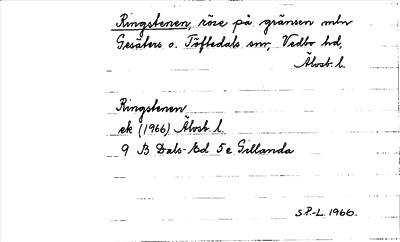 Ringstenen, röse på gränsen mln
Gesäters o. Töftedals snr, Vedbo hd,
Älvsb. l.
Ringstenen
ek (1966) Älvsb. l.
9 B Dals-Ed 5 e Gillanda
S.P.-L. 1966.